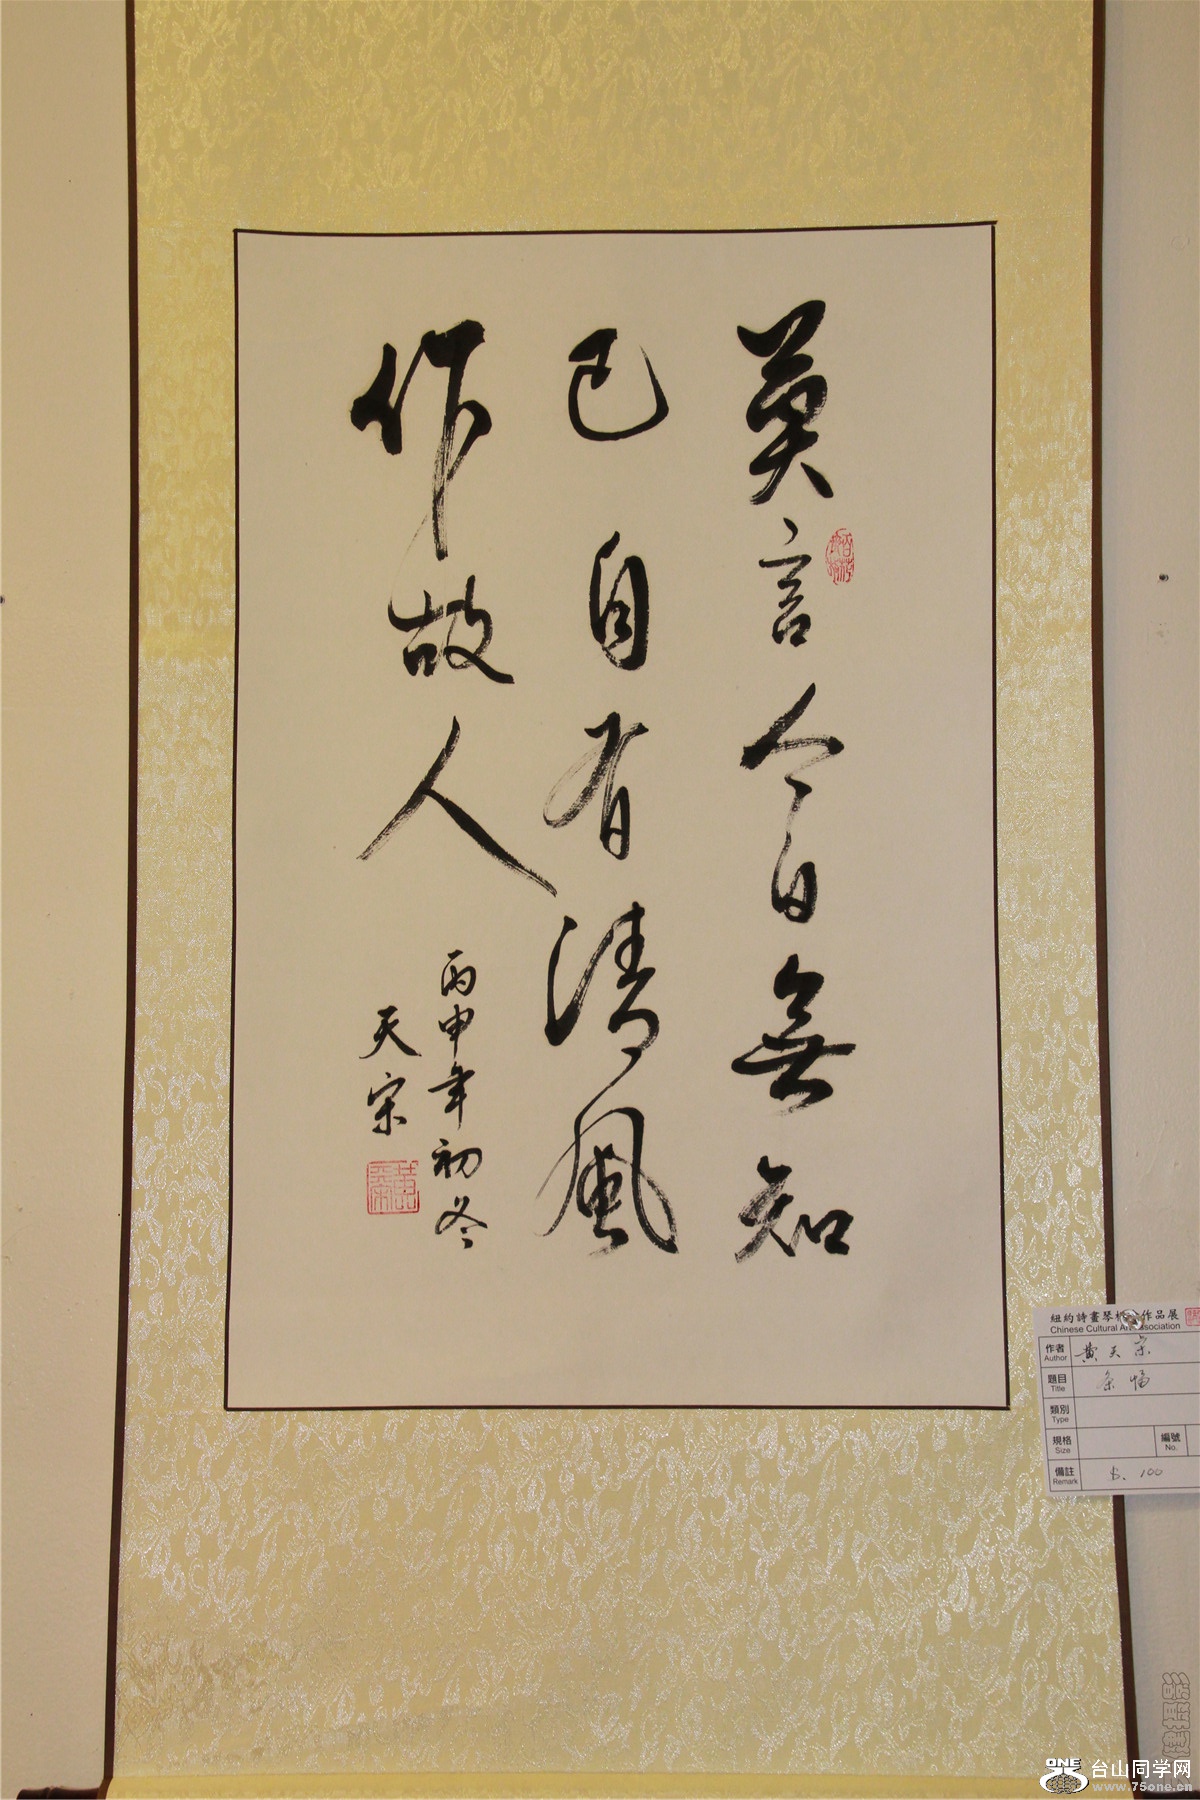 莫言今日無知
已自有清風
作故人
丙申年初冬
天宗
紐約詩畫琴棋會作品展
Chinese Cultural Art Association
作者 Author 黄天宗
題目 Title 条幅
類別 Type
規格 Size 編號 No.
備註 Remark $. 100
ONE 台山同学网
www.75one.cn